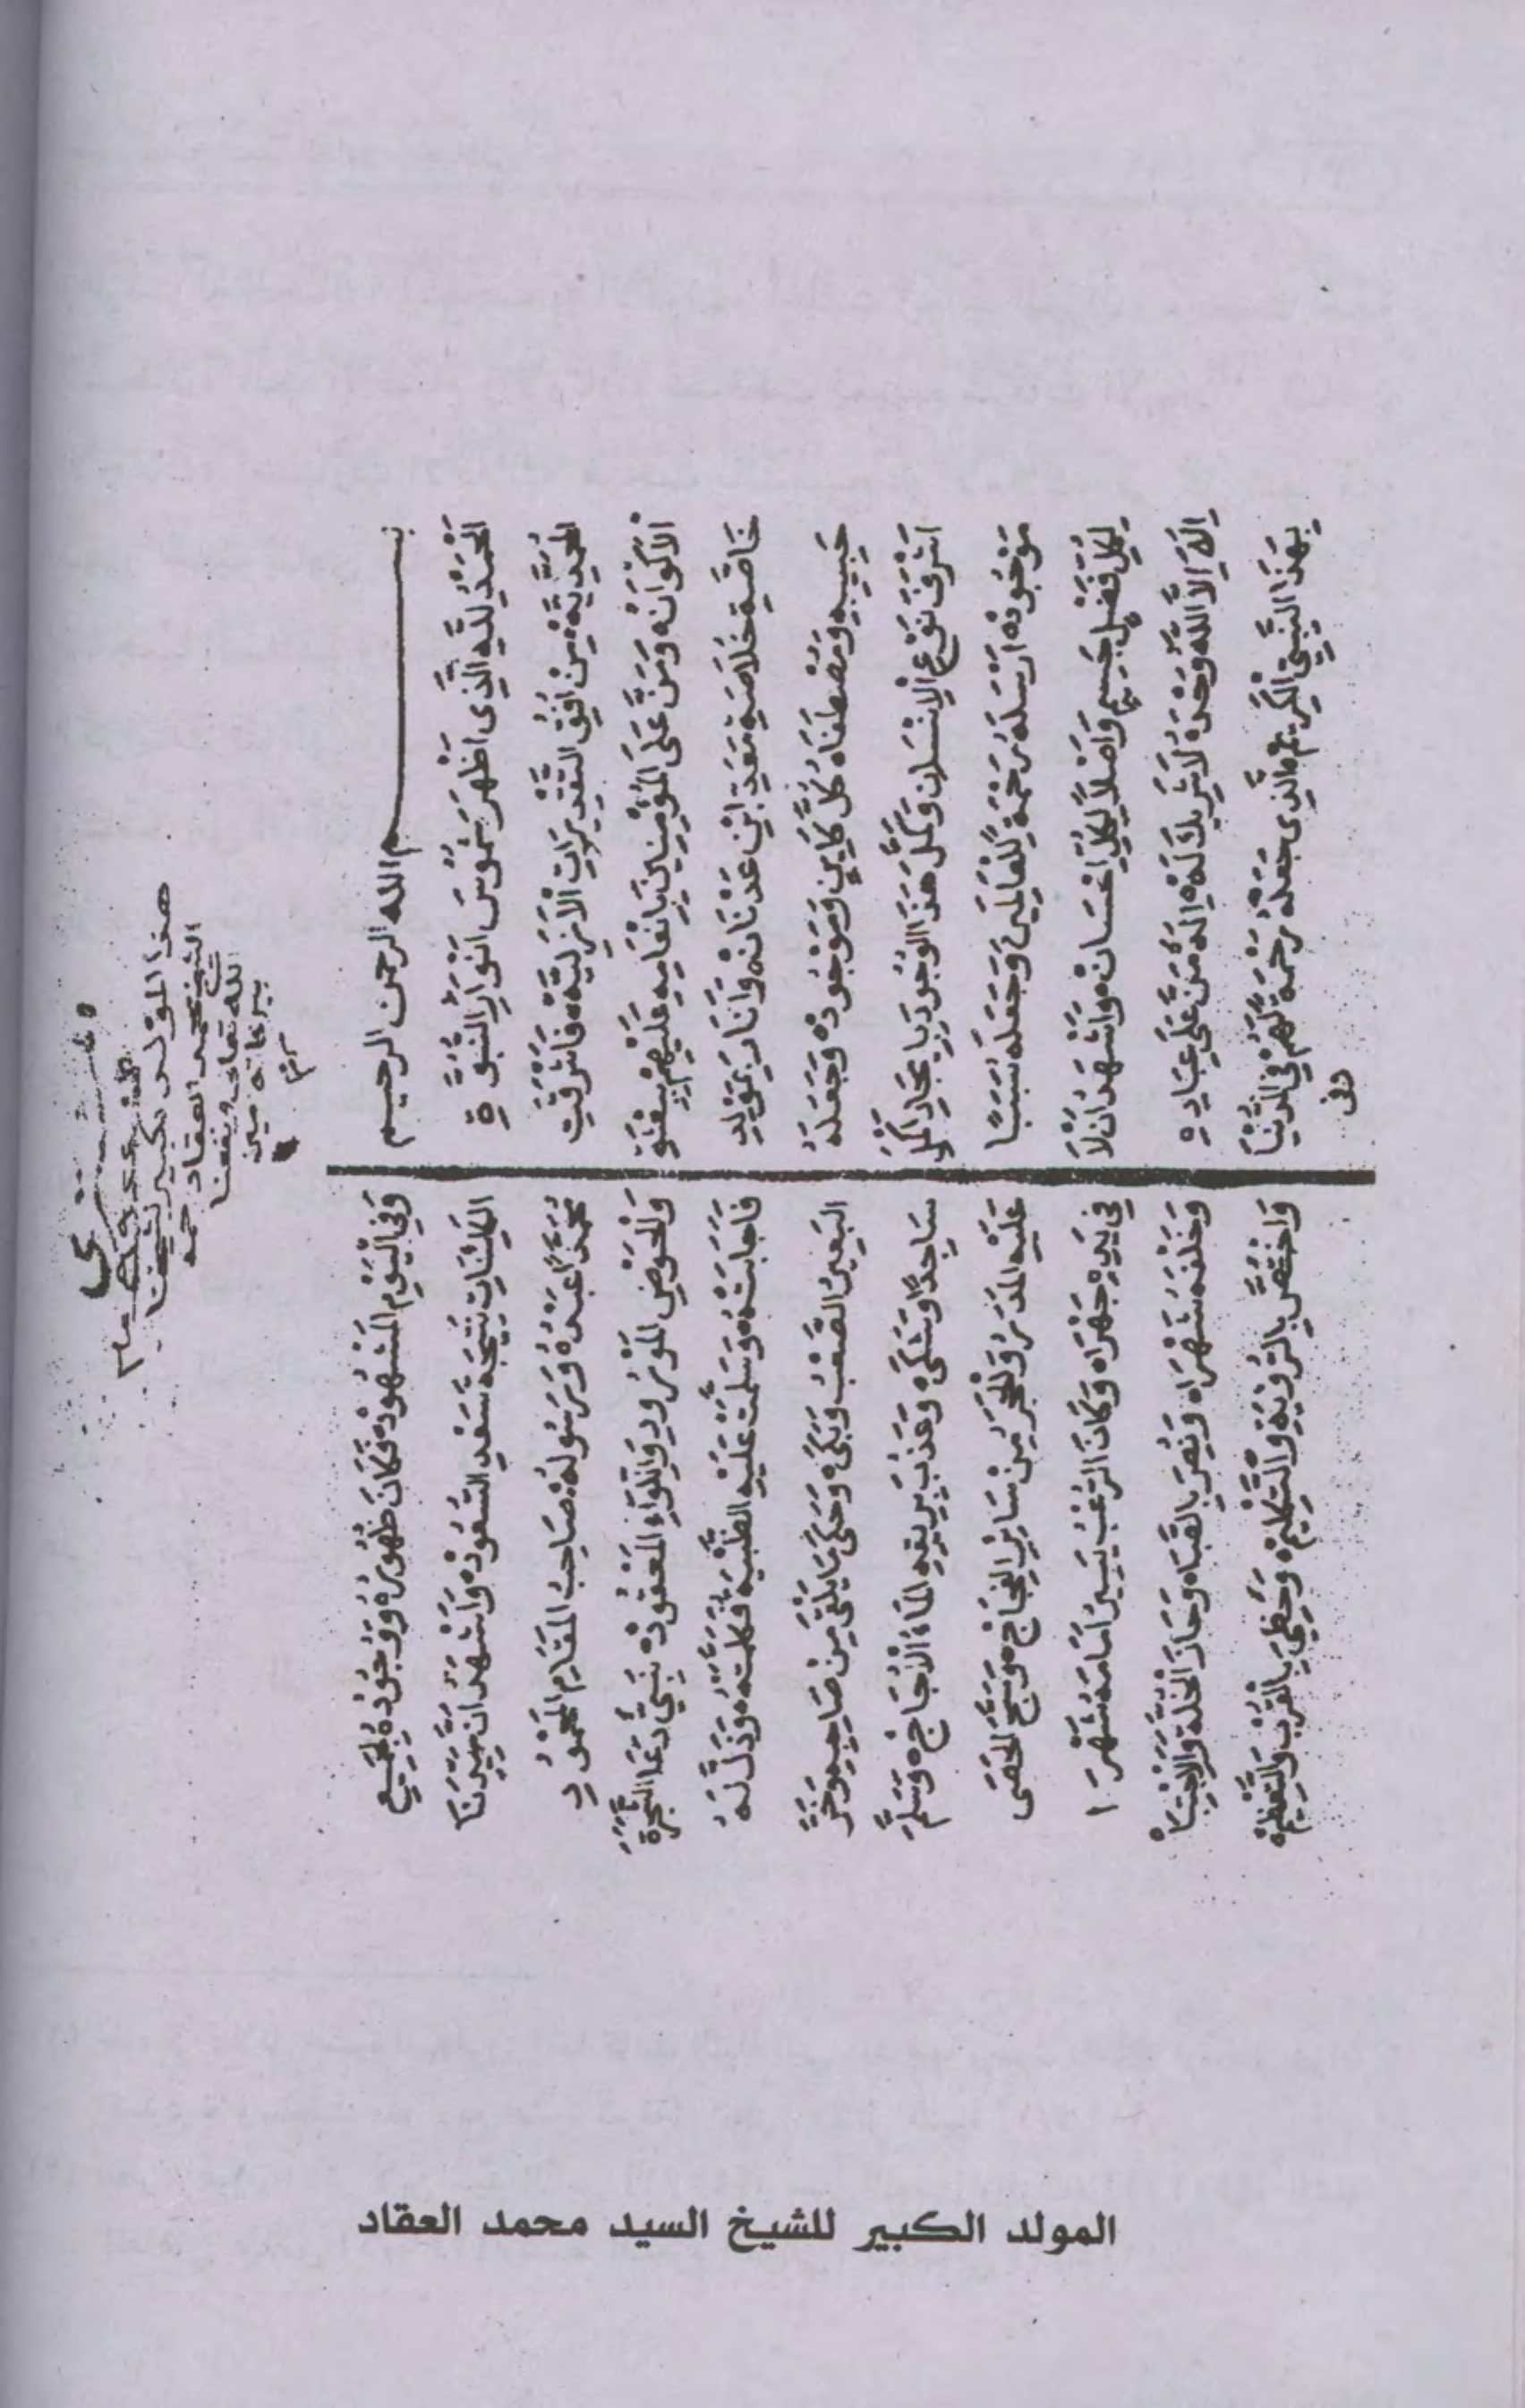 هذا المولد الكبير لشيخنا
الشيخ محمد العقاد رحمه
الله تعالى ونفعنا
ببركاته آمين
بسم الله الرحمن الرحيم
اَلْحَمْدُ لِلَّهِ الَّذِى اَظْهَرَ شُمُوسَ اَنْوَارِ النُّبُوَّةِ
الْمُحَمَّدِيَّةِ مِنْ اُفُقِ التَّقْدِيرَاتِ الْاَزَلِيَّةِ فَاَشْرَقَتِ
الْاَكْوَانُ وَمَنَّ عَلَى الْمُؤْمِنِينَ بِاِنْعَامِهِ عَلَيْهِمْ بِبِعْثَةِ
خَاصَّةِ خُلَاصَةِ مَعَدِّ ابْنِ عَدْنَانَ وَاَنَارَ بِمَوْلِدِ
حَبِيبِهِ وَمُصْطَفَاهُ كُلَّ كَايِنٍ وَمَوْجُودٍ وَجَعَلَهُ
اَشْرَفَ نَوْعِ الْاِنْسَانِ وَكَمَّلَ هَذَا الْوُجُودَ بِاِيجَادِ اَكْمَلِ
مَوْجُودٍ اَرْسَلَهُ رَحْمَةً لِلْعَالَمِينَ وَجَعَلَهُ سَبَبًا
لِكُلِّ فَضْلٍ جَسِيمٍ وَاَصْلًا لِكُلِّ اِحْسَانٍ وَاَشْهَدُ اَنْ لَا
اِلَهَ اِلَّا اللَّهُ وَحْدَهُ لَا شَرِيكَ لَهُ اِلَهٌ مَنَّ عَلَى عِبَادِهِ
بِهَذَا النَّبِىِّ الْكَرِيمِ الَّذِى جَعَلَهُ رَحْمَةً لَهُمْ فِي الدُّنْيَا
وفى
وَفِي الْيَوْمِ الْمَشْهُودِ فَكَانَ ظُهُورُهُ وَوُجُودُهُ لِجَمِيعِ
الْكَائِنَاتِ نَتِيجَةَ سَعْدِ السُّعُودِ وَاَشْهَدُ اَنَّ سَيِّدَنَا
مُحَمَّدًا عَبْدُهُ وَرَسُولُهُ صَاحِبُ الْمَقَامِ الْمَحْمُودِ
وَالْحَوْضِ الْمَوْرُودِ وَاللِّوَاءِ الْمَعْقُودِ نَبِىٌّ دَعَا الشَّجَرَةَ
فَاَجَابَتْهُ وَسَلَّمَتْ عَلَيْهِ الظَّبْيَةُ فَكَلَّمَتْهُ وَذَلَّ لَهُ
الْبَعِيرُ الصَّعْبُ وَبَكَى وَحَكَى مَا يَلْقَى مِنْ صَاحِبِهِ وَخَرَّ
سَاجِدًا وَشَكَى وَعَذُبَ بِرِيقِهِ الْمَاءُ الْاُجَاجُ وَسَلَّمَ
عَلَيْهِ الْمَدَرُ وَالْحَجَرُ مِنْ سَايِرِ الْفِجَاجِ وَسَبَّحَ الْحَصَى
فِي يَدِهِ جَهْرًا وَكَانَ الرُّعْبُ يَسِيرُ اَمَامَهُ شَهْرًا
وَخَلْفَهُ شَهْرًا وَنُصِرَ بِالصَّبَا وَحَازَ الْخُلَّةَ وَالْاِجْتِبَا
وَاخْتُصَّ بِالرُّؤْيَةِ وَالتَّكْلِيمِ وَحَظِيَ بِالْقُرْبِ وَالتَّعْظِيمِ
المولد الكبير للشيخ السيد محمد العقاد